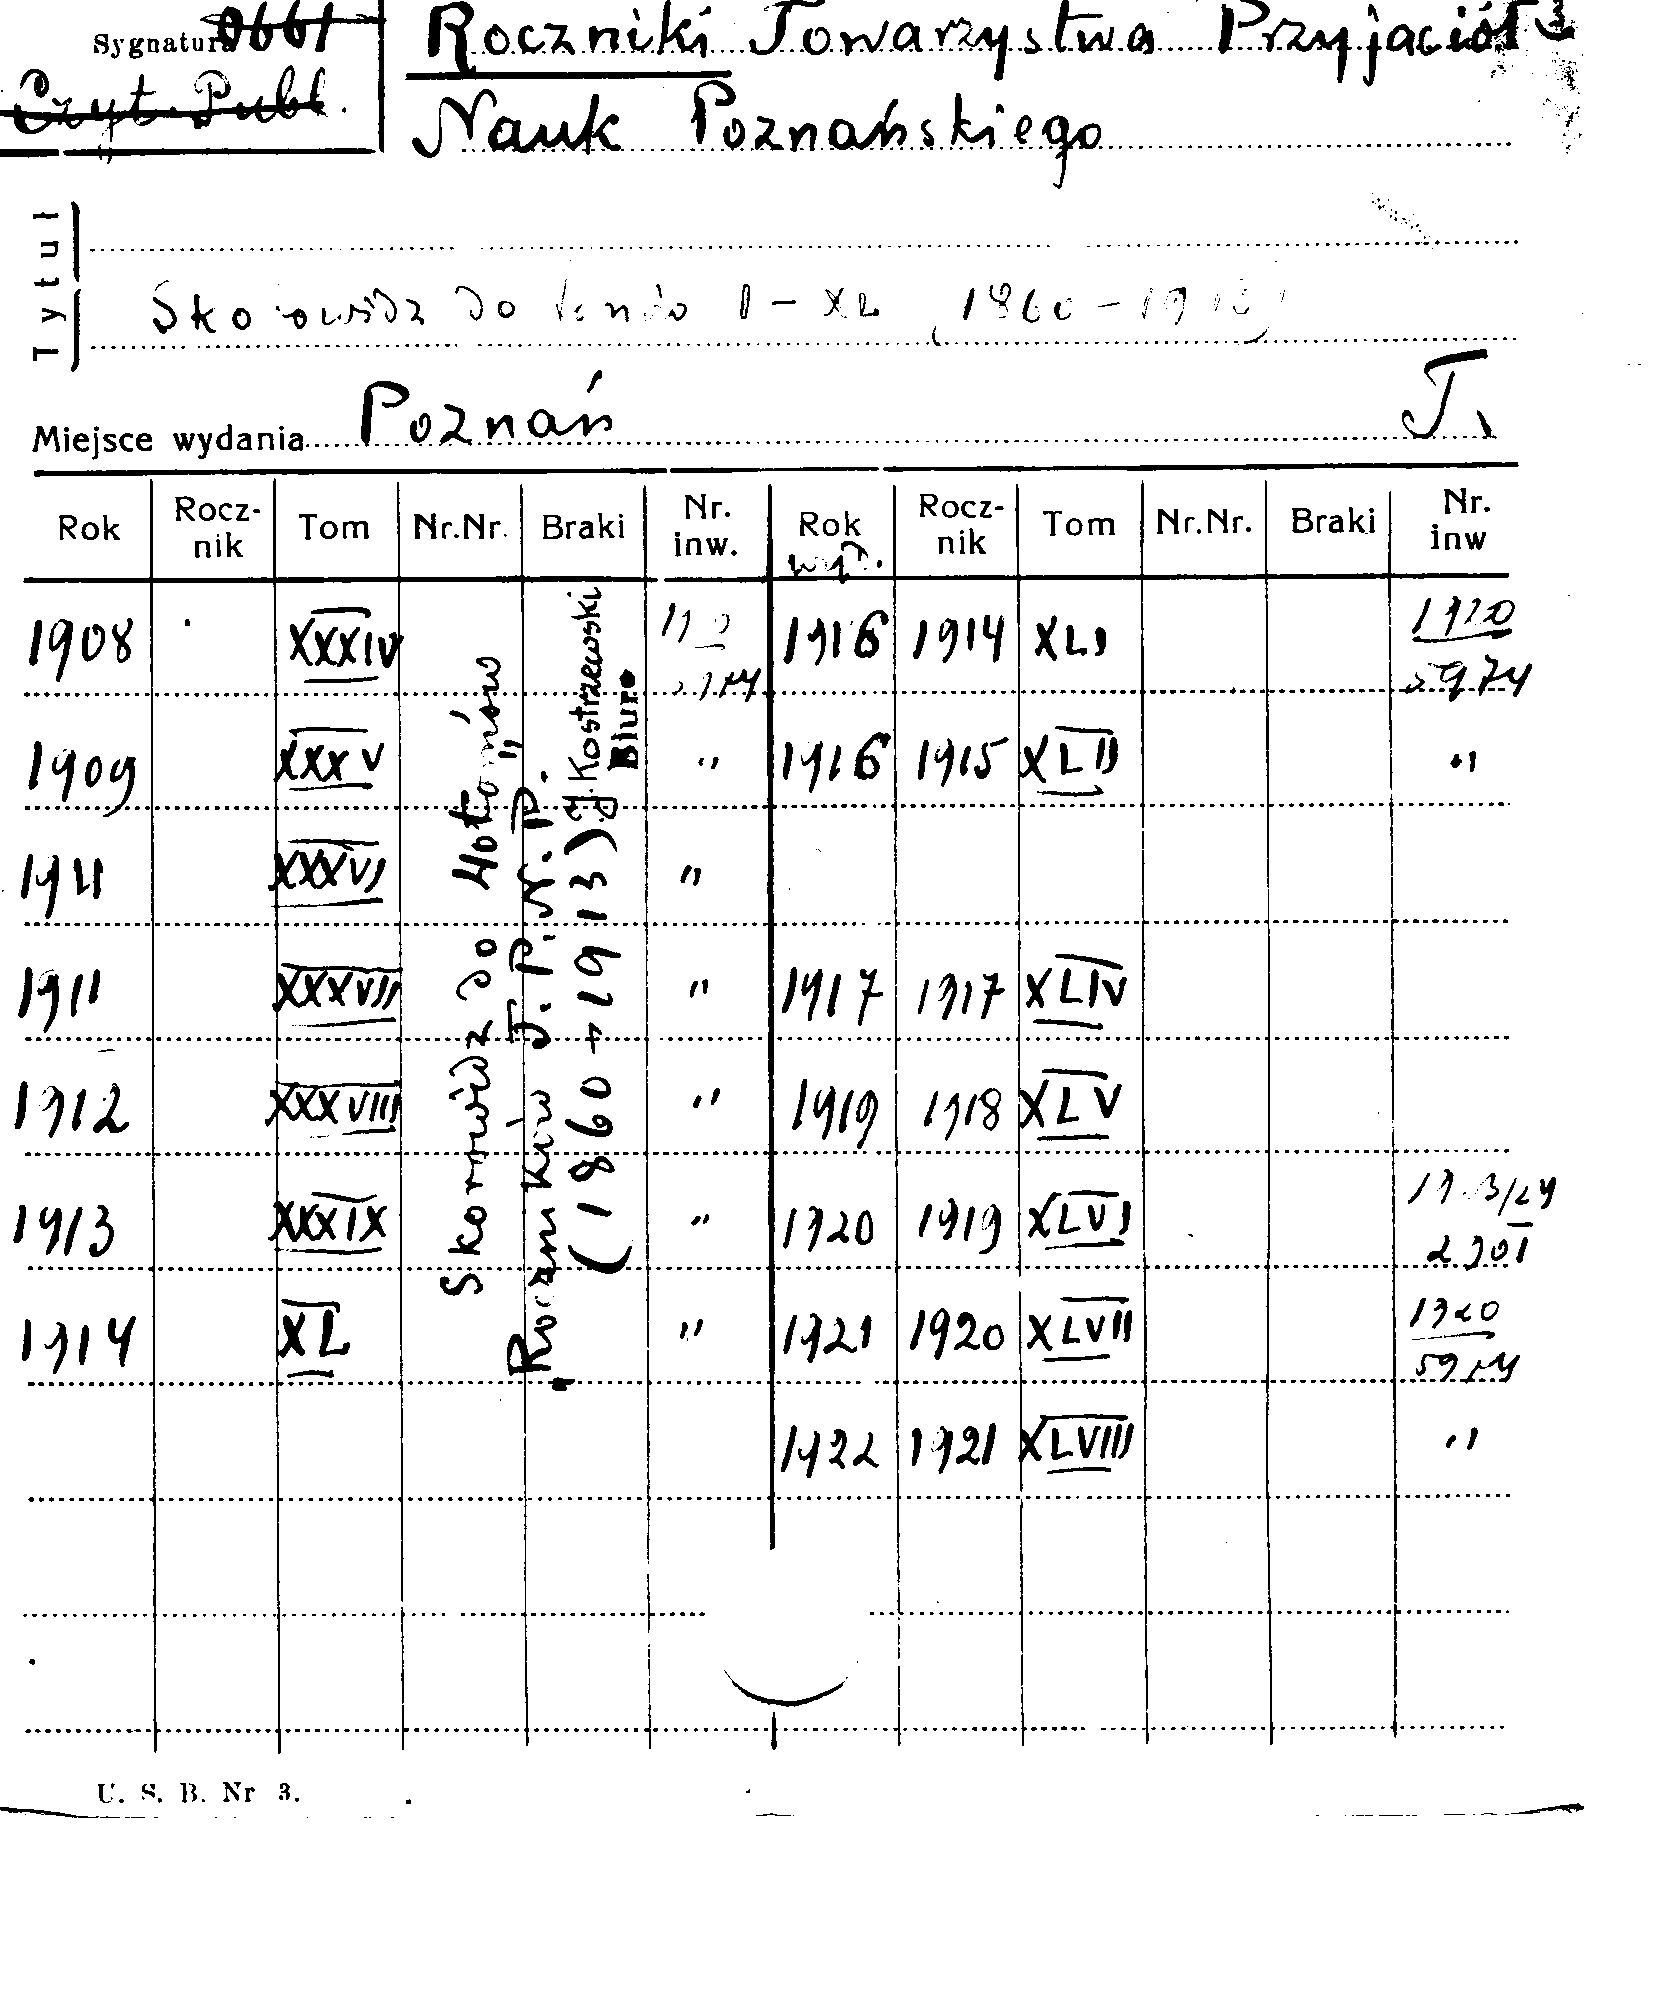 Sygnatura 0661 Roczniki Towarzystwa Przyjaciół 3
Czyt. Publ. Nauk Poznańskiego
Tytuł
Skorowidz do I - XL (1860 - 1913)
Miejsce wydania Poznań T.
Rok Rocz-nik Tom Nr.Nr. Braki Nr. inw. Rok wyd. Rocz-nik Tom Nr.Nr. Braki Nr. inw
1908 XXXIV 1916 1914 XLI 1920
5974
1909 XXXV " 1916 1915 XLII "
1911 XXXVI "
1911 XXXVII " 1917 1917 XLIV
1912 XXXVIII " 1919 1918 XLV
1913 XXXIX " 1920 1919 XLVI
1914 XL " 1921 1920 XLVII 1920
5974
1922 1921 XLVIII "
Skorowidz do 40 tomów
„Roczników T. T. P. N. P."
(1860 - 1913) J. Kostrzewski
Biuro
U. S. B. Nr 3.